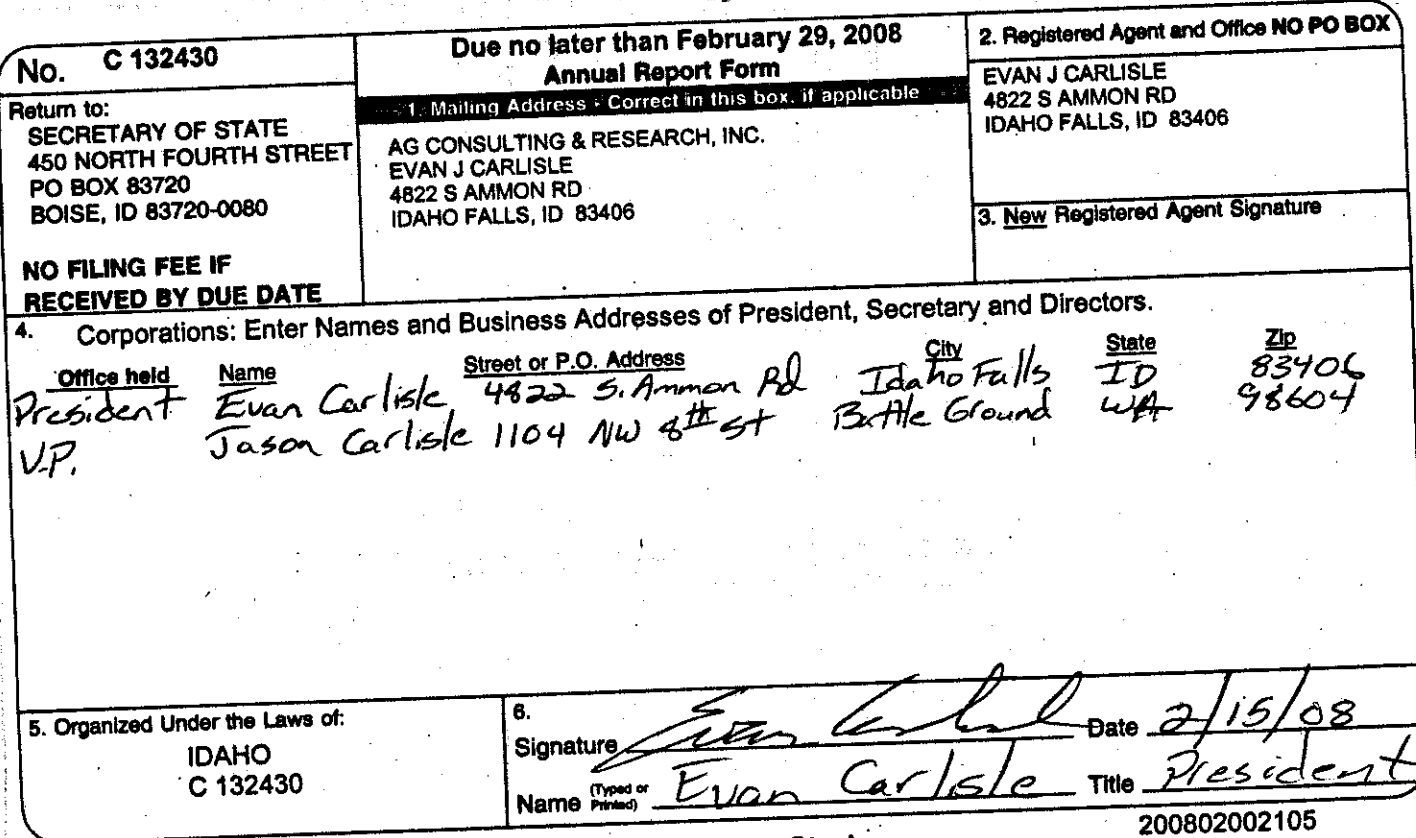 No. C 132430
Return to:
SECRETARY OF STATE
450 NORTH FOURTH STREET
PO BOX 83720
BOISE, ID 83720-0080
NO FILING FEE IF
RECEIVED BY DUE DATE
Due no later than February 29, 2008
Annual Report Form
1. Mailing Address - Correct in this box, if applicable
AG CONSULTING & RESEARCH, INC.
EVAN J CARLISLE
4822 S AMMON RD
IDAHO FALLS, ID 83406
2. Registered Agent and Office NO PO BOX
EVAN J CARLISLE
4822 S AMMON RD
IDAHO FALLS, ID 83406
3. New Registered Agent Signature
4. Corporations: Enter Names and Business Addresses of President, Secretary and Directors.
Office held Name Street or P.O. Address City State Zip
President Evan Carlisle 4822 S. Ammon Rd Idaho Falls ID 83406
V.P. Jason Carlisle 1104 NW 8th St Battle Ground WA 98604
5. Organized Under the Laws of:
IDAHO
C 132430
6.
Signature Evan Carlisle Date 2/15/08
Name (Typed or Printed) Evan Carlisle Title President
200802002105